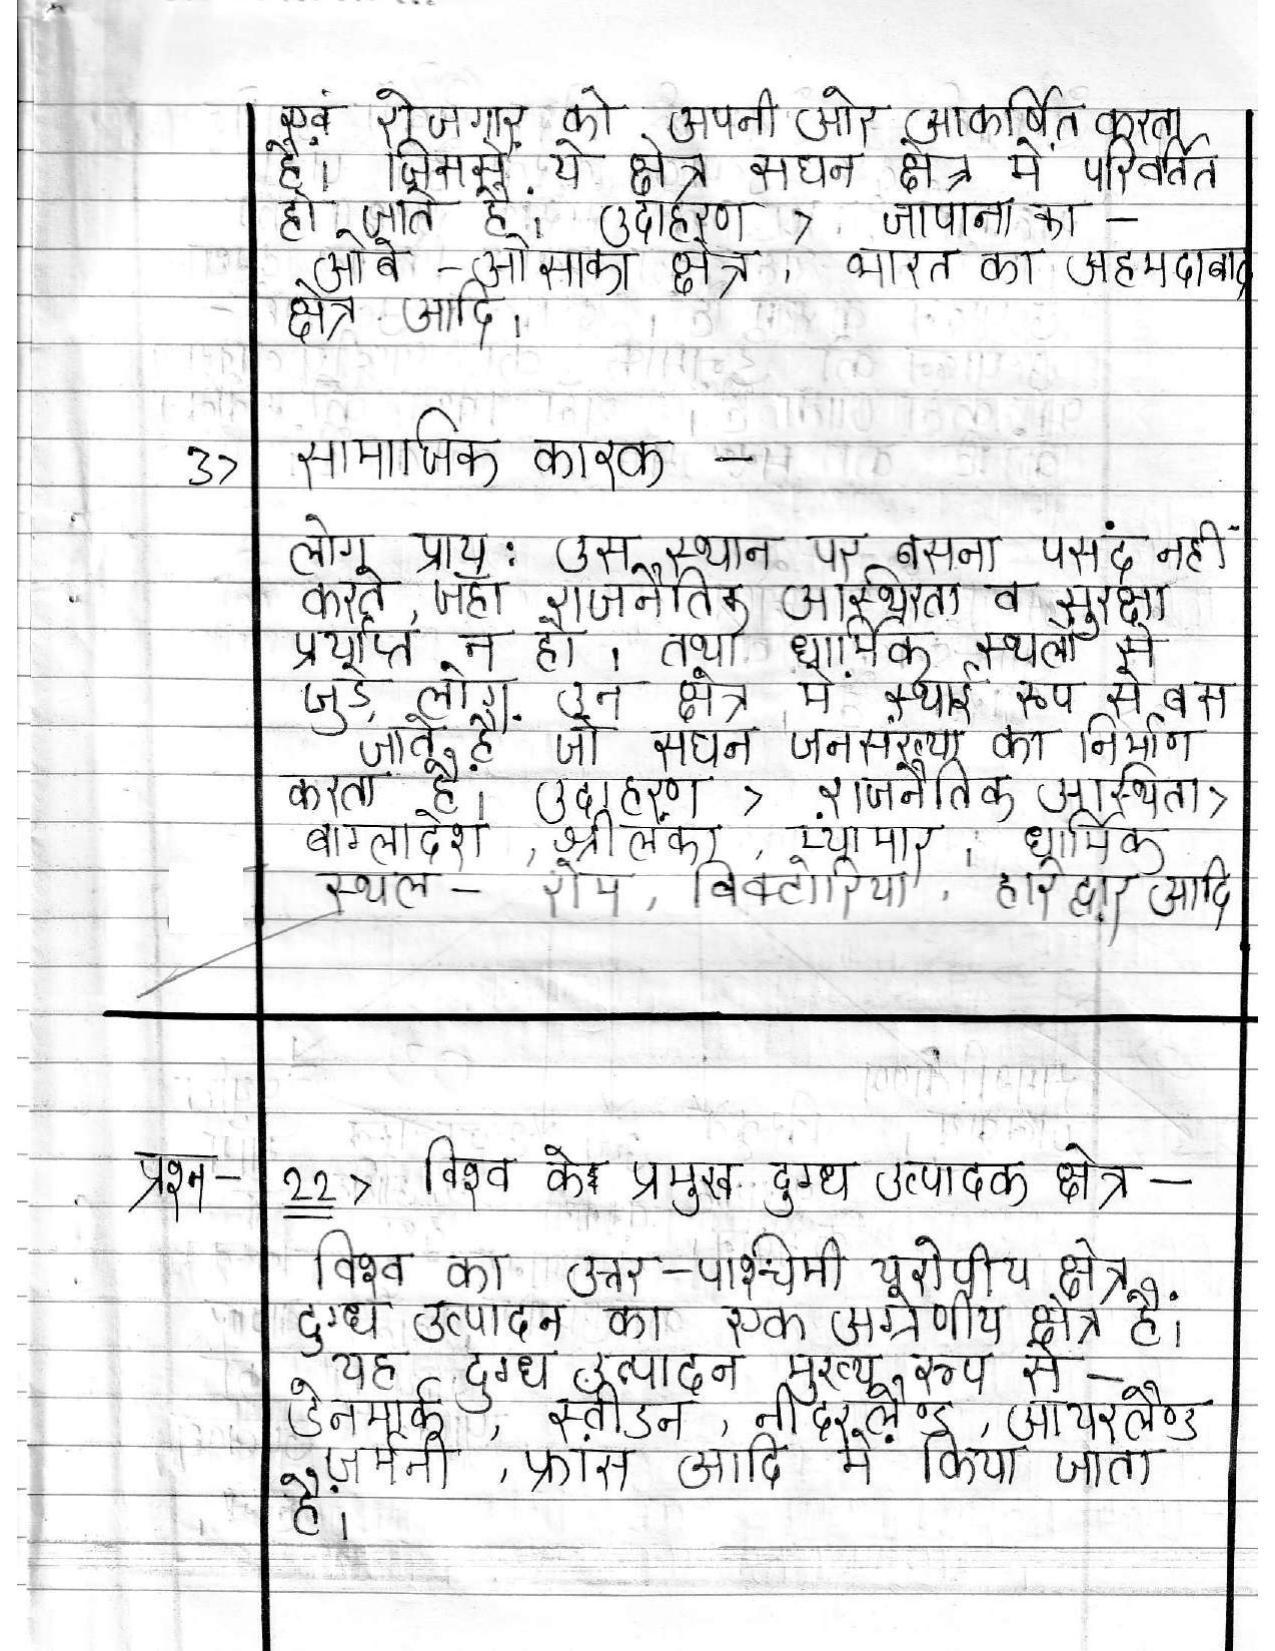 एवं रोजगार को अपनी ओर आकर्षित करता
है। जिससे ये क्षेत्र सघन क्षेत्र में परिवर्तित
हो जाते है। उदाहरण > जापाना का -
ओबे - ओसाका क्षेत्र, भारत का अहमदाबाद
क्षेत्र आदि।
3> सामाजिक कारक -
लोग प्राय: उस स्थान पर बसना पसंद नहीं
करते, जहाँ राजनैतिक अस्थिरता व सुरक्षा
प्रर्याप्त न हो। तथा धार्मिक स्थलों से
जुड़े लोग उन क्षेत्र में स्थाई रूप से बस
जाते है जो सघन जनसंख्या का निर्माण
करता है। उदाहरण > राजनैतिक अस्थिता>
बाग्लादेश, श्रीलंका, म्यामार, धार्मिक
स्थल - रोम, विक्टोरिया, हरिद्वार आदि
प्रश्न- 22> विश्व के प्रमुख दुग्ध उत्पादक क्षेत्र -
विश्व का उत्तर-पाश्चिमी यूरोपीय क्षेत्र
दुग्ध उत्पादन का एक अग्रेणीय क्षेत्र है।
यह दुग्ध उत्पादन मुख्य रूप से -
डेनमार्क, स्वीडन, नीदरलैण्ड, आयरलैण्ड
जर्मनी, फ्रांस आदि में किया जाता
है।